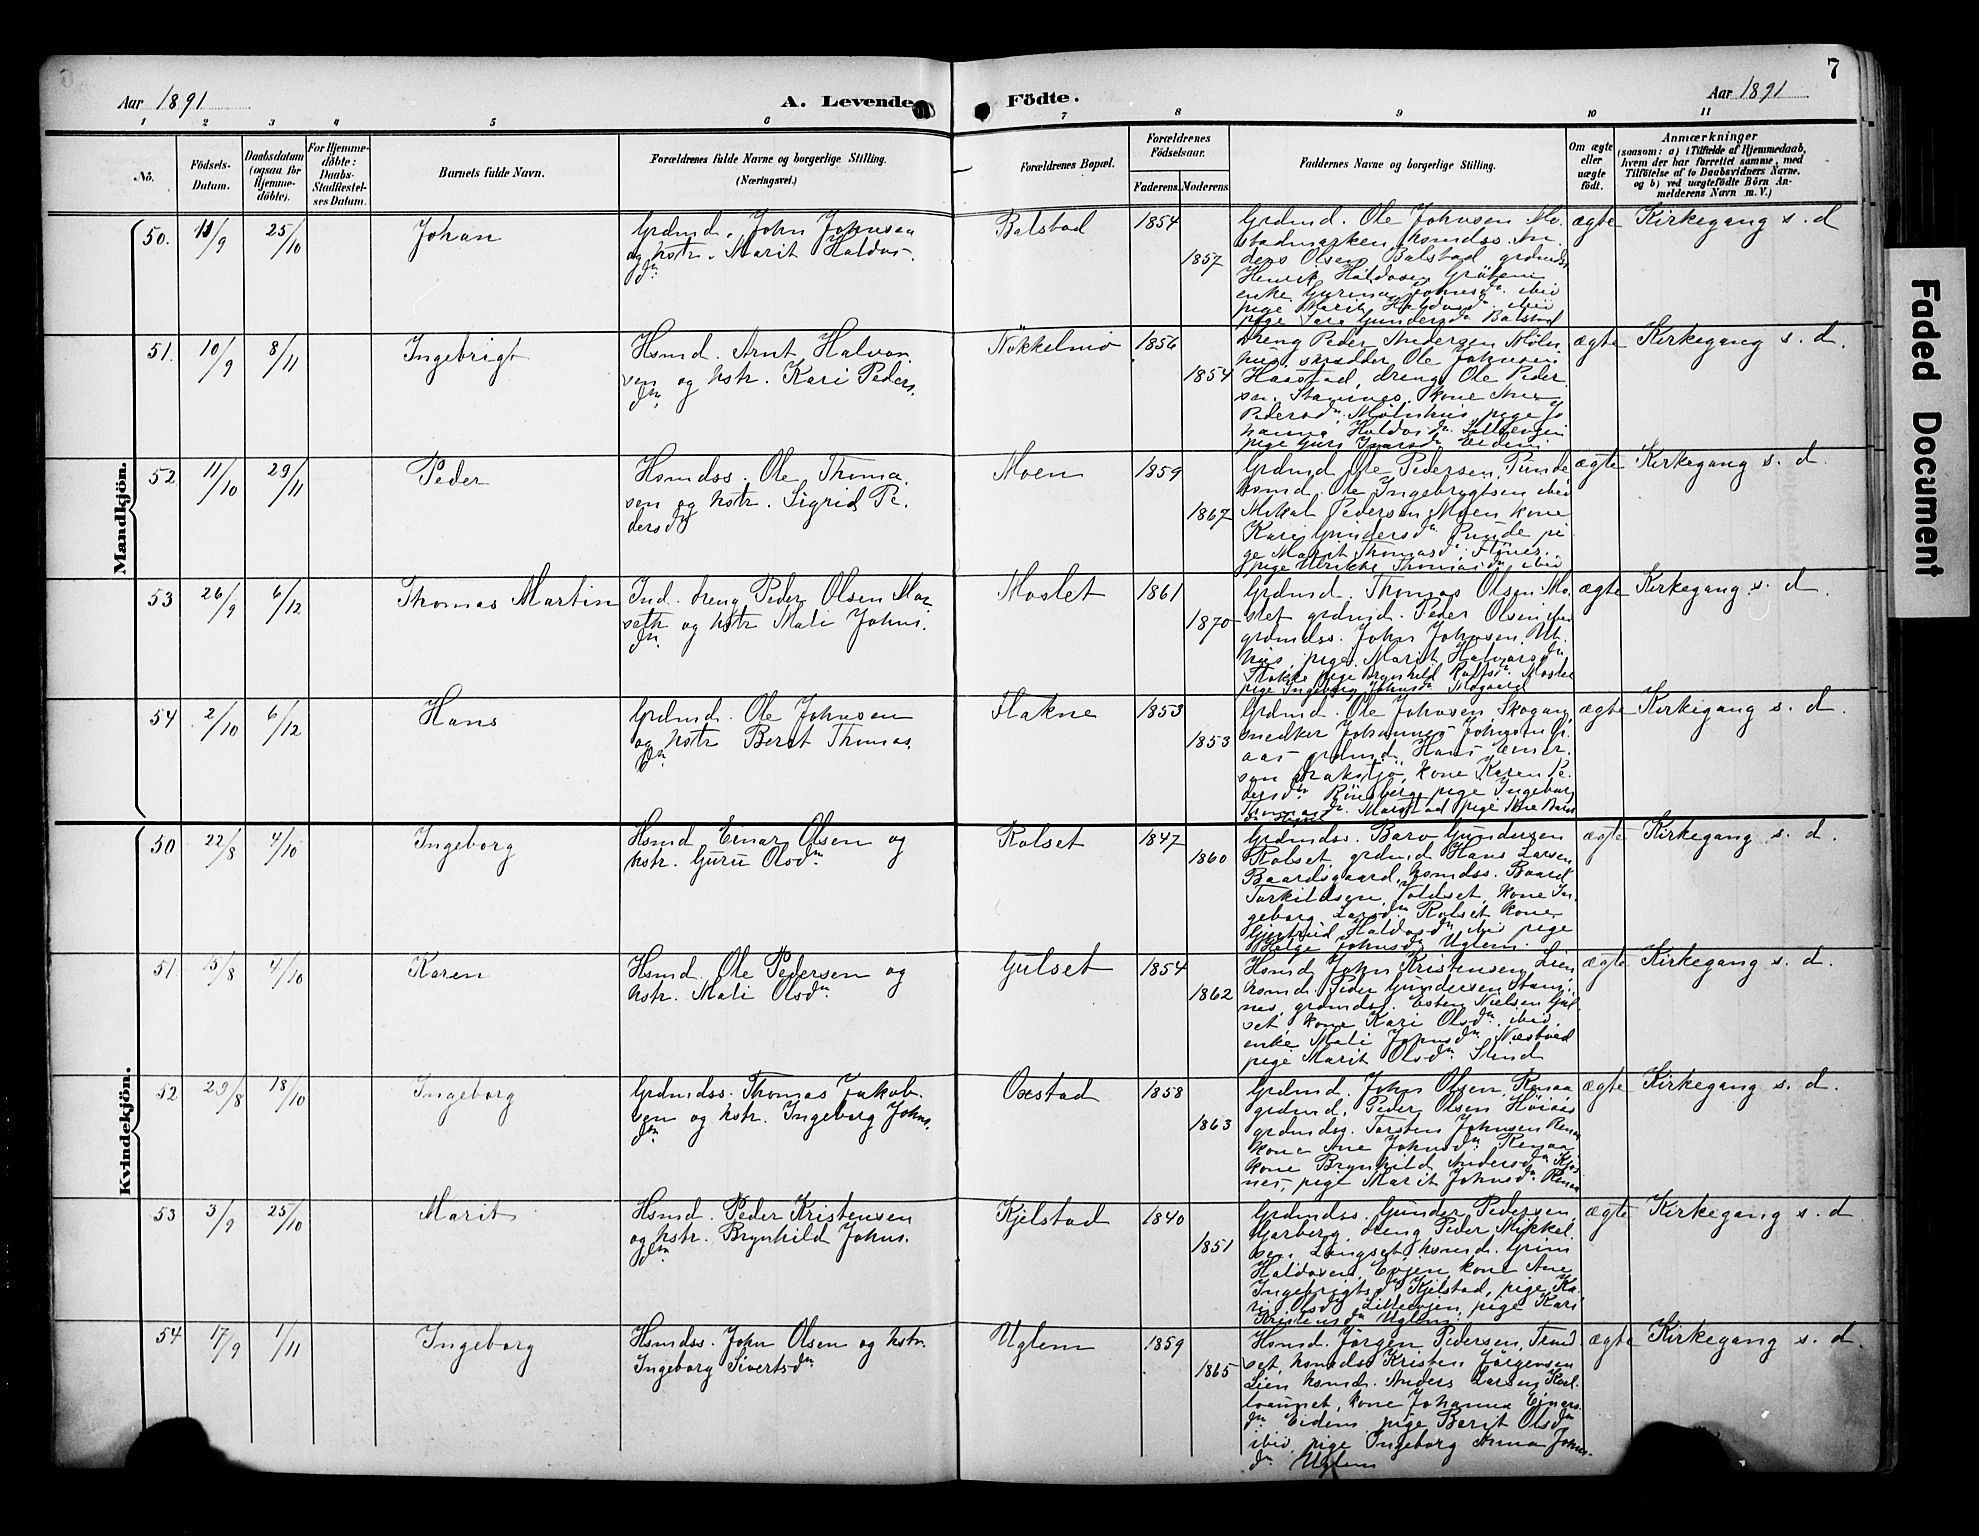 7
Aar 1891
A. Levende
Födte.
Aar 1891
1 2 3 4 5 6 7 8 9 10 11
No.
Födsels-
Datum.
Daabsdatum
(ogsaa for
Hjemme-
döbte).
For Hjemme-
döbte:
Daabs-
Stadfæstel-
ses Datum.
Barnets fulde Navn.
Forældrenes fulde Navne og borgerlige Stilling.
(Næringsvei.)
Forældrenes Bopæl.
Forældrenes
Födselsaar.
Faderens. Moderens.
Faddernes Navne og borgerlige Stilling.
Om ægte
eller
uægte
födt.
Anmærkninger
(saasom: a) i Tilfælde af Hjemmedaab,
hvem der har forrettet samme, med
Tilföielse af to Daabsvidners Navne,
og b) ved uægtefödte Börn An-
melderens Navn m. V.)
Mandkjön.
50. 11/9 25/10
Johan
Grdmd. John Johnsen
og hstr. Marit Haldos.
dn.
Balstad
1854
1857
Grdmd. Ole Johnsen Mo-
stadmarken, hsmdss. An-
ders Olsen Balstad grdmds
Henrik Haldosen
enke Gurina Johnsdn. ibid
pige Marit Haldosdn. ibid
pige Sara Gundersdn Balstad
ægte
Kirkegang s. d
51. 10/9 8/11
Ingebrigt
Hsmd. Arnt Halvor
sen og hstr. Kari Peders.
dn.
Nökkelmo
1856
1854
Dreng Peder Andersen Möln
hus skrædder Ole Johnsen
Haastad, dreng Ole Peder
sen Stamnes, kone Ane
Pedersdn. Mölnhus, pige Jo
hanna Haldosdn. Lilleevjen
pige Guru Ivarsdn Eidem
ægte
Kirkegang s. d.
52 11/10 29/11
Peder
Hsmdss. Ole Thoma
sen og hstr. Sigrid Pe.
dersdn
Moen
1859
1867
Grdmd Ole Pedersen, Punde
hsmd. Ole Ingebrigtsen ibid
Mikal Pedersen Moen kone
Kari Gundersdn Punde pi
ge Marit Thomasdn. Flönes.
pige Ulrikke Thomasdn ibid
ægte
Kirkegang s. d.
53 26/9 6/12
Thomas Martin
Ind. dreng Peder Olsen Mo
seth og hstr Mali Johns.
dn.
Moslet
1861
1870
Grdmd. Thomas Olsen Mo.
slet grdmd. Peder Olsen ibid
grdmdss. John Johnsen, Ut-
hus, pige Marit Halvorsdn.
Flokke pige Brynhild Rolfsdn Moslet
pige Ingeborg Johnsdn Mogaard
ægte
Kirkegang s. d.
54 2/10 6/12
Hans
Grdmd. Ole Johnsen
og hstr Berit Thomas
dn.
Flakne
1853
1853
Grdmd. Ole Johnsen, Skogan,
snedker Johannes Johnsen
aas grdmd. Hans Einar.
sen Drakstjö, kone Karen Pe.
dersdn. Rönsberg pige Ingeborg
Thomasdn. Marstad pige Ane
ægte
Kirkegang s. d.
Kvindekjön.
50 22/8 4/10
Ingeborg
Hsmd Einar Olsen og
hstr. Guru Olsdn
Rolset
1847
1860
Grdmdss. Baro Gundersen
Rolset, grdmd Hans Larsen
Baardsgaard, hsmdss. Baard
Torkildsen, Foldset, kone In.
geborg Larsdn Rolset kone
Gjertrud Haldosdn ibid pige
Helge Johnsdn Uglem.
ægte
Kirkegang s. d.
51 15/8 4/10
Karen
Hsmd. Ole Pedersen og
hstr. Mali Olsdn.
Gulset
1854
1862
Hsmd John Kristensen, Lien
hsmd. Peder Gundersen Stam.
nes, grdmds. Esten Nielsen Gul
set, kone Kari Olsdn. ibid.
enke Mali Johnsdn Næsbvad
pige Marit Olsdn. Slind
ægte
Kirkegang s. d.
52 29/8 18/10
Ingeborg
Grdmdss. Thomas Jakob.
sen og hstr. Ingeborg Johns.
dn.
Oxstad
1858
1863
Grdmd. John Olsen, Renaa
grdmd. Peder Olsen Höiaas
grdmdss. Torsten Johnsen Renaa
kone Ane Johnsdn. Renaa,
kone Brynhild Andersdn Kjös
nes, pige Marit Johnsdn Renaa
ægte
Kirkegang s. d.
53 3/9 25/10
Marit
Hsmd. Peder Kristensen
og hstr. Brynhild Johns.
dn
Kjelstad
1840
1851
Grdmdss. Gunder Pedersen,
Garberg, dreng Peder Mikkel
sen Langset, hsmd. Grim
Haldosen, Evjen kone Ane
Ingebrigtsdn Kjelstad, pige Ka
ri Olsdn Lilleevjen, pige Kari
Kristensdn Uglem.
ægte
Kirkegang s. d
54 17/9 1/11
Ingeborg
Hsmdss. John Olsen og hstr.
Ingeborg Sivertsdn
Uglem
1859
1865
Hsmd. Jörgen Pedersen, Trond
set, hsmdss Kristen Jörgensen
Lien hsmd. Anders Larsen Kval.
, kone Johanna Einars
dn Eidem pige Berit Olsdn
ibid, pige Ingeborg Anna Johns.
dn Uglem
ægte
Kirkegang s. d.
Faded Document